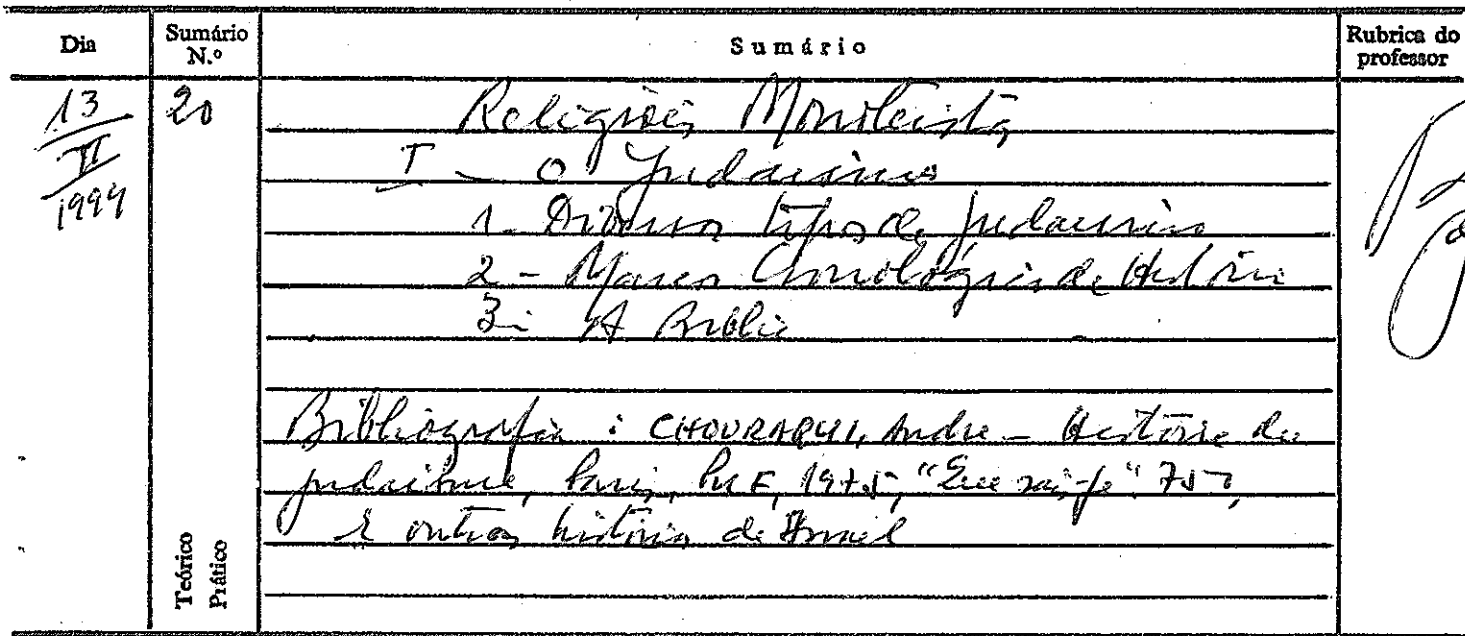 Dia
Sumário N.º
Sumário
Rubrica do professor
13
II
1994
20
Religiões Monoteístas
I - O Judaísmo
1 - Diversos tipos de judaísmo
2 - Marcos Cronológicos da História
3 - A Bíblia
Bibliografia : CHOURAQUI, André - Histoire du
judaïsme, Paris, PUF, 1975, "Que sais-je" 750,
e outras histórias de Israel
Teórico
Prático